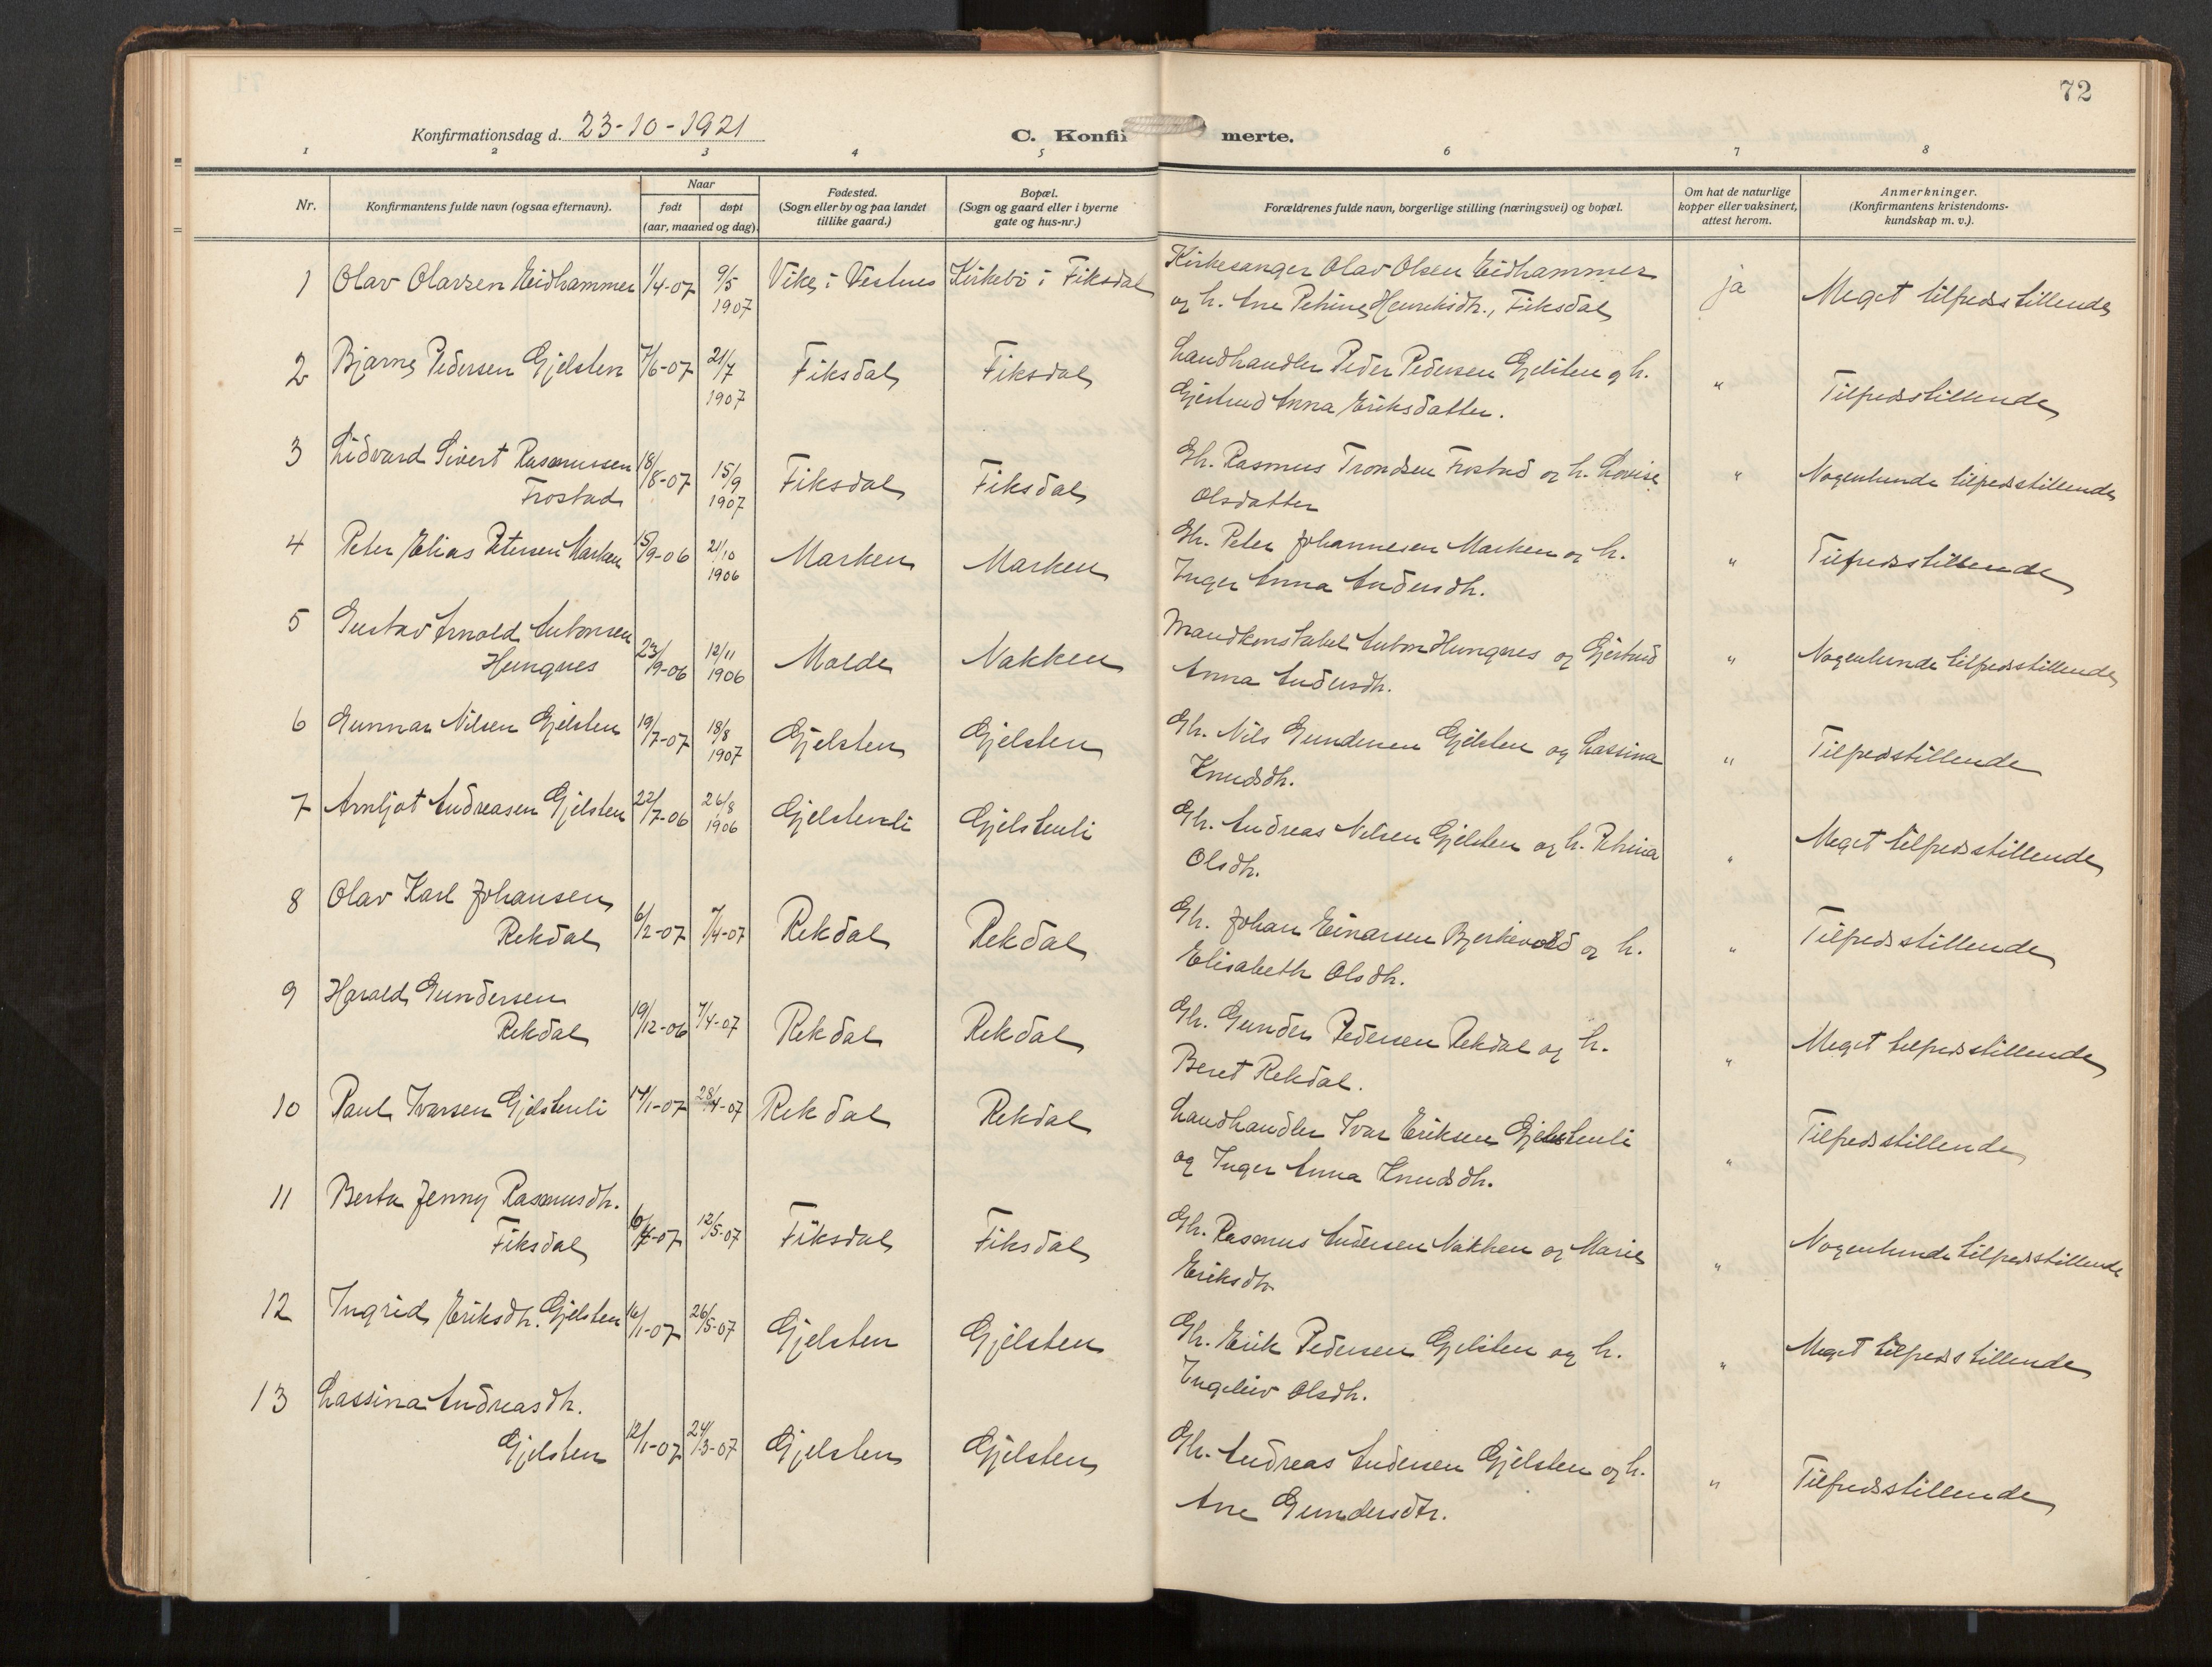 72
Konfirmationsdag d. 23-10-1921
C. Konfirmerte.
1 2 3 4 5 6 7 8
Nr.
Konfirmantens fulde navn (ogsaa efternavn).
Naar
født døpt
(aar, maaned og dag).
Fødested.
(Sogn eller by og paa landet
tillike gaard.)
Bopæl.
(Sogn og gaard eller i byerne
gate og hus-nr.)
Forældrenes fulde navn, borgerlige stilling (næringsvei) og bopæl.
Om hat de naturlige
kopper eller vaksinert,
attest herom.
Anmerkninger.
(Konfirmantens kristendoms-
kundskap m. v.).
1 Olav Olavsen Eidhammer 1/4-07 9/5 1907 Vike i Vestnes Kirkebö i Fiksdal
Kirkesanger Olav Olsen Eidhammer
og h. Ane Petrine Henriksdtr., Fiksdal
ja Meget tilfredsstillende
2 Bjarne Pedersen Gjelsten 7/6-07 21/7 1907 Fiksdal Fiksdal
Landhandler Peder Pedersen Gjelsten og h.
Gjertrud Anna Eriksdatter.
" Tilfredsstillende
3 Lidvard Sivert Rasmussen
Frostad 18/8-07 15/9 1907 Fiksdal Fiksdal
Gbr. Rasmus Trondsen Frostad og h. Lovise
Olsdatter
" Nogenlunde tilfredsstillende
4 Peter Elias Petersen Marken 15/9-06 21/10 1906 Marken Marken
Gbr. Peter Johannesen Marken og h.
Inger Anna Andersdtr.
" Tilfredsstillende
5 Gustav Arnold Antonsen
Hungnes 23/9-06 12/11 1906 Molde Nakken
Mandkonstabel Anton Hungnes og Gjertrud
Anna Andersdtr.
" Nogenlunde tilfredsstillende
6 Gunnar Nilsen Gjelsten 19/7-07 18/8 1907 Gjelsten Gjelsten
Gbr. Nils Gundersen Gjelsten og Lassina
Knudsdtr.
" Tilfredstillende
7 Arnljot Andreasen Gjelsten 22/7-06 26/8 1906 Gjelstenli Gjelstenli
Gbr. Andreas Nilsen Gjelsten og h. Petrina
Olsdtr.
" Meget tilfredsstillende
8 Olav Karl Johansen
Rekdal 6/2-07 7/4-07 Rekdal Rekdal
Gbr. Johan Einarsen Bjerkevold og h.
Elisabeth Olsdtr.
" Tilfredsstillende
9 Harald Gundersen
Rekdal 19/12-06 7/4-07 Rekdal Rekdal
Gbr. Gunder Pedersen Rekdal og h.
Beret Rekdal.
" Meget tilfredsstillende
10 Paul Ivarsen Gjelstenli 14/1-07 28/4-07 Rekdal Rekdal
Landhandler Ivar Eriksen Gjelstenli
og Inger Anna Knudsdtr.
" Tilfredsstillende
11 Berta Jenny Rasmusdtr.
Fiksdal 12/5-07 Fiksdal Fiksdal
Gbr. Rasmus Andersen Nakken og Marie
Eriksdtr
" Nogenlunde tilfredsstillende
12 Ingrid Eriksdtr. Gjelsten 16/1-07 26/5-07 Gjelsten Gjelsten
Gbr. Erik Pedersen Gjelsten og h.
Ingeleiv Olsdtr.
" Meget tilfredsstillende
13 Lassina Andreasdtr.
Gjelsten 12/1-07 24/3-07 Gjelsten Gjelsten
Gbr. Andreas Andersen Gjelsten og h.
Ane Gundersdtr.
" Tilfredsstillende